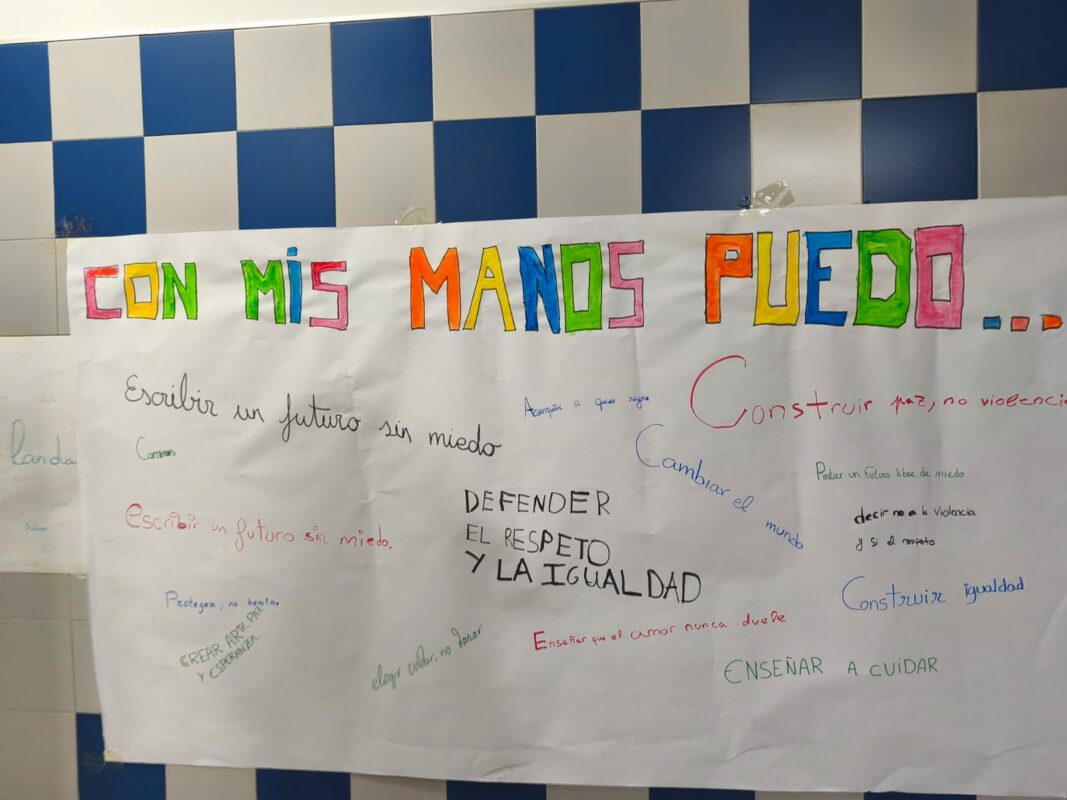 CON MIS MANOS PUEDO...
Escribir un futuro sin miedo
a quien sufre
Construir paz, no violencia
Cambiar el mundo
Pintar un futuro libre de miedo
DEFENDER
EL RESPETO
Y LA IGUALDAD
decir no a la violencia
y si al respeto
Escribir un futuro sin miedo.
Construir igualdad
Proteger, no
CREAR ARTE, PAZ
Y ESPERANZA.
elegir cuidar, no dañar
Enseñar que el amor nunca duele
ENSEÑAR A CUIDAR